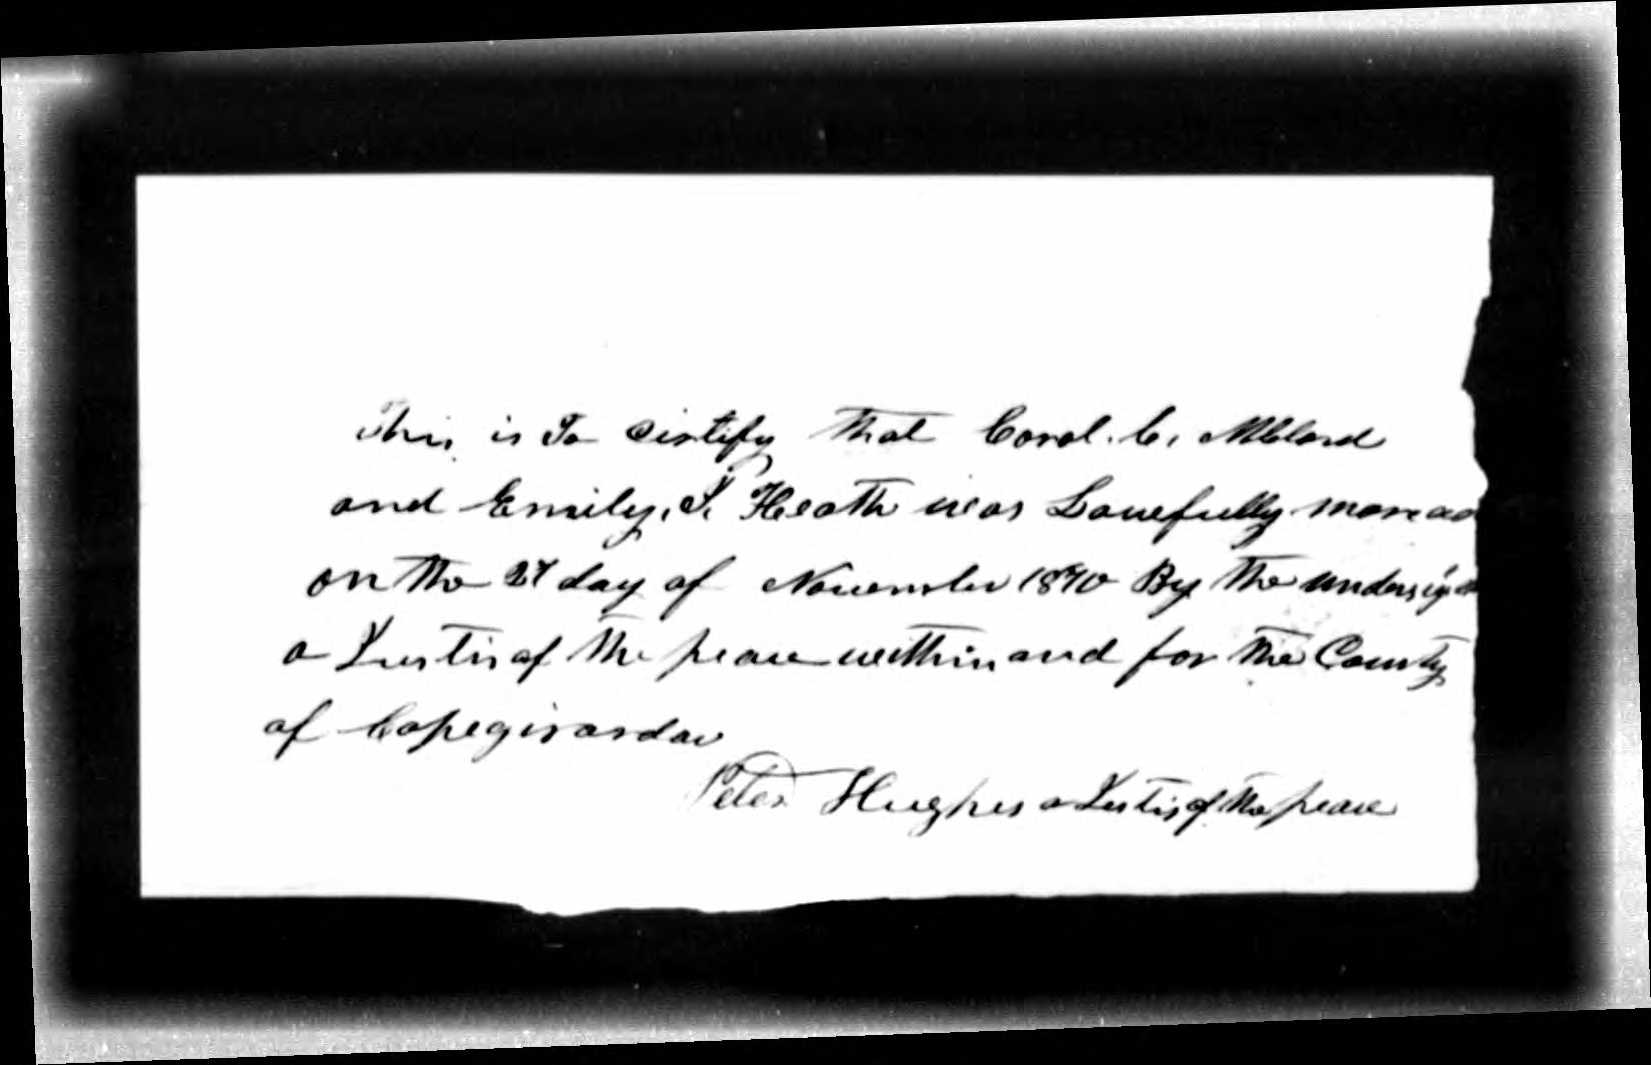 This is To Cirtify That Coral. C.
and Emily. S. Heath was Lawefully
on the 27 day of November 1870 By the
a Justis of the peace within and for the County
of Capegirardau
Peter Hughes a Justis of the peace